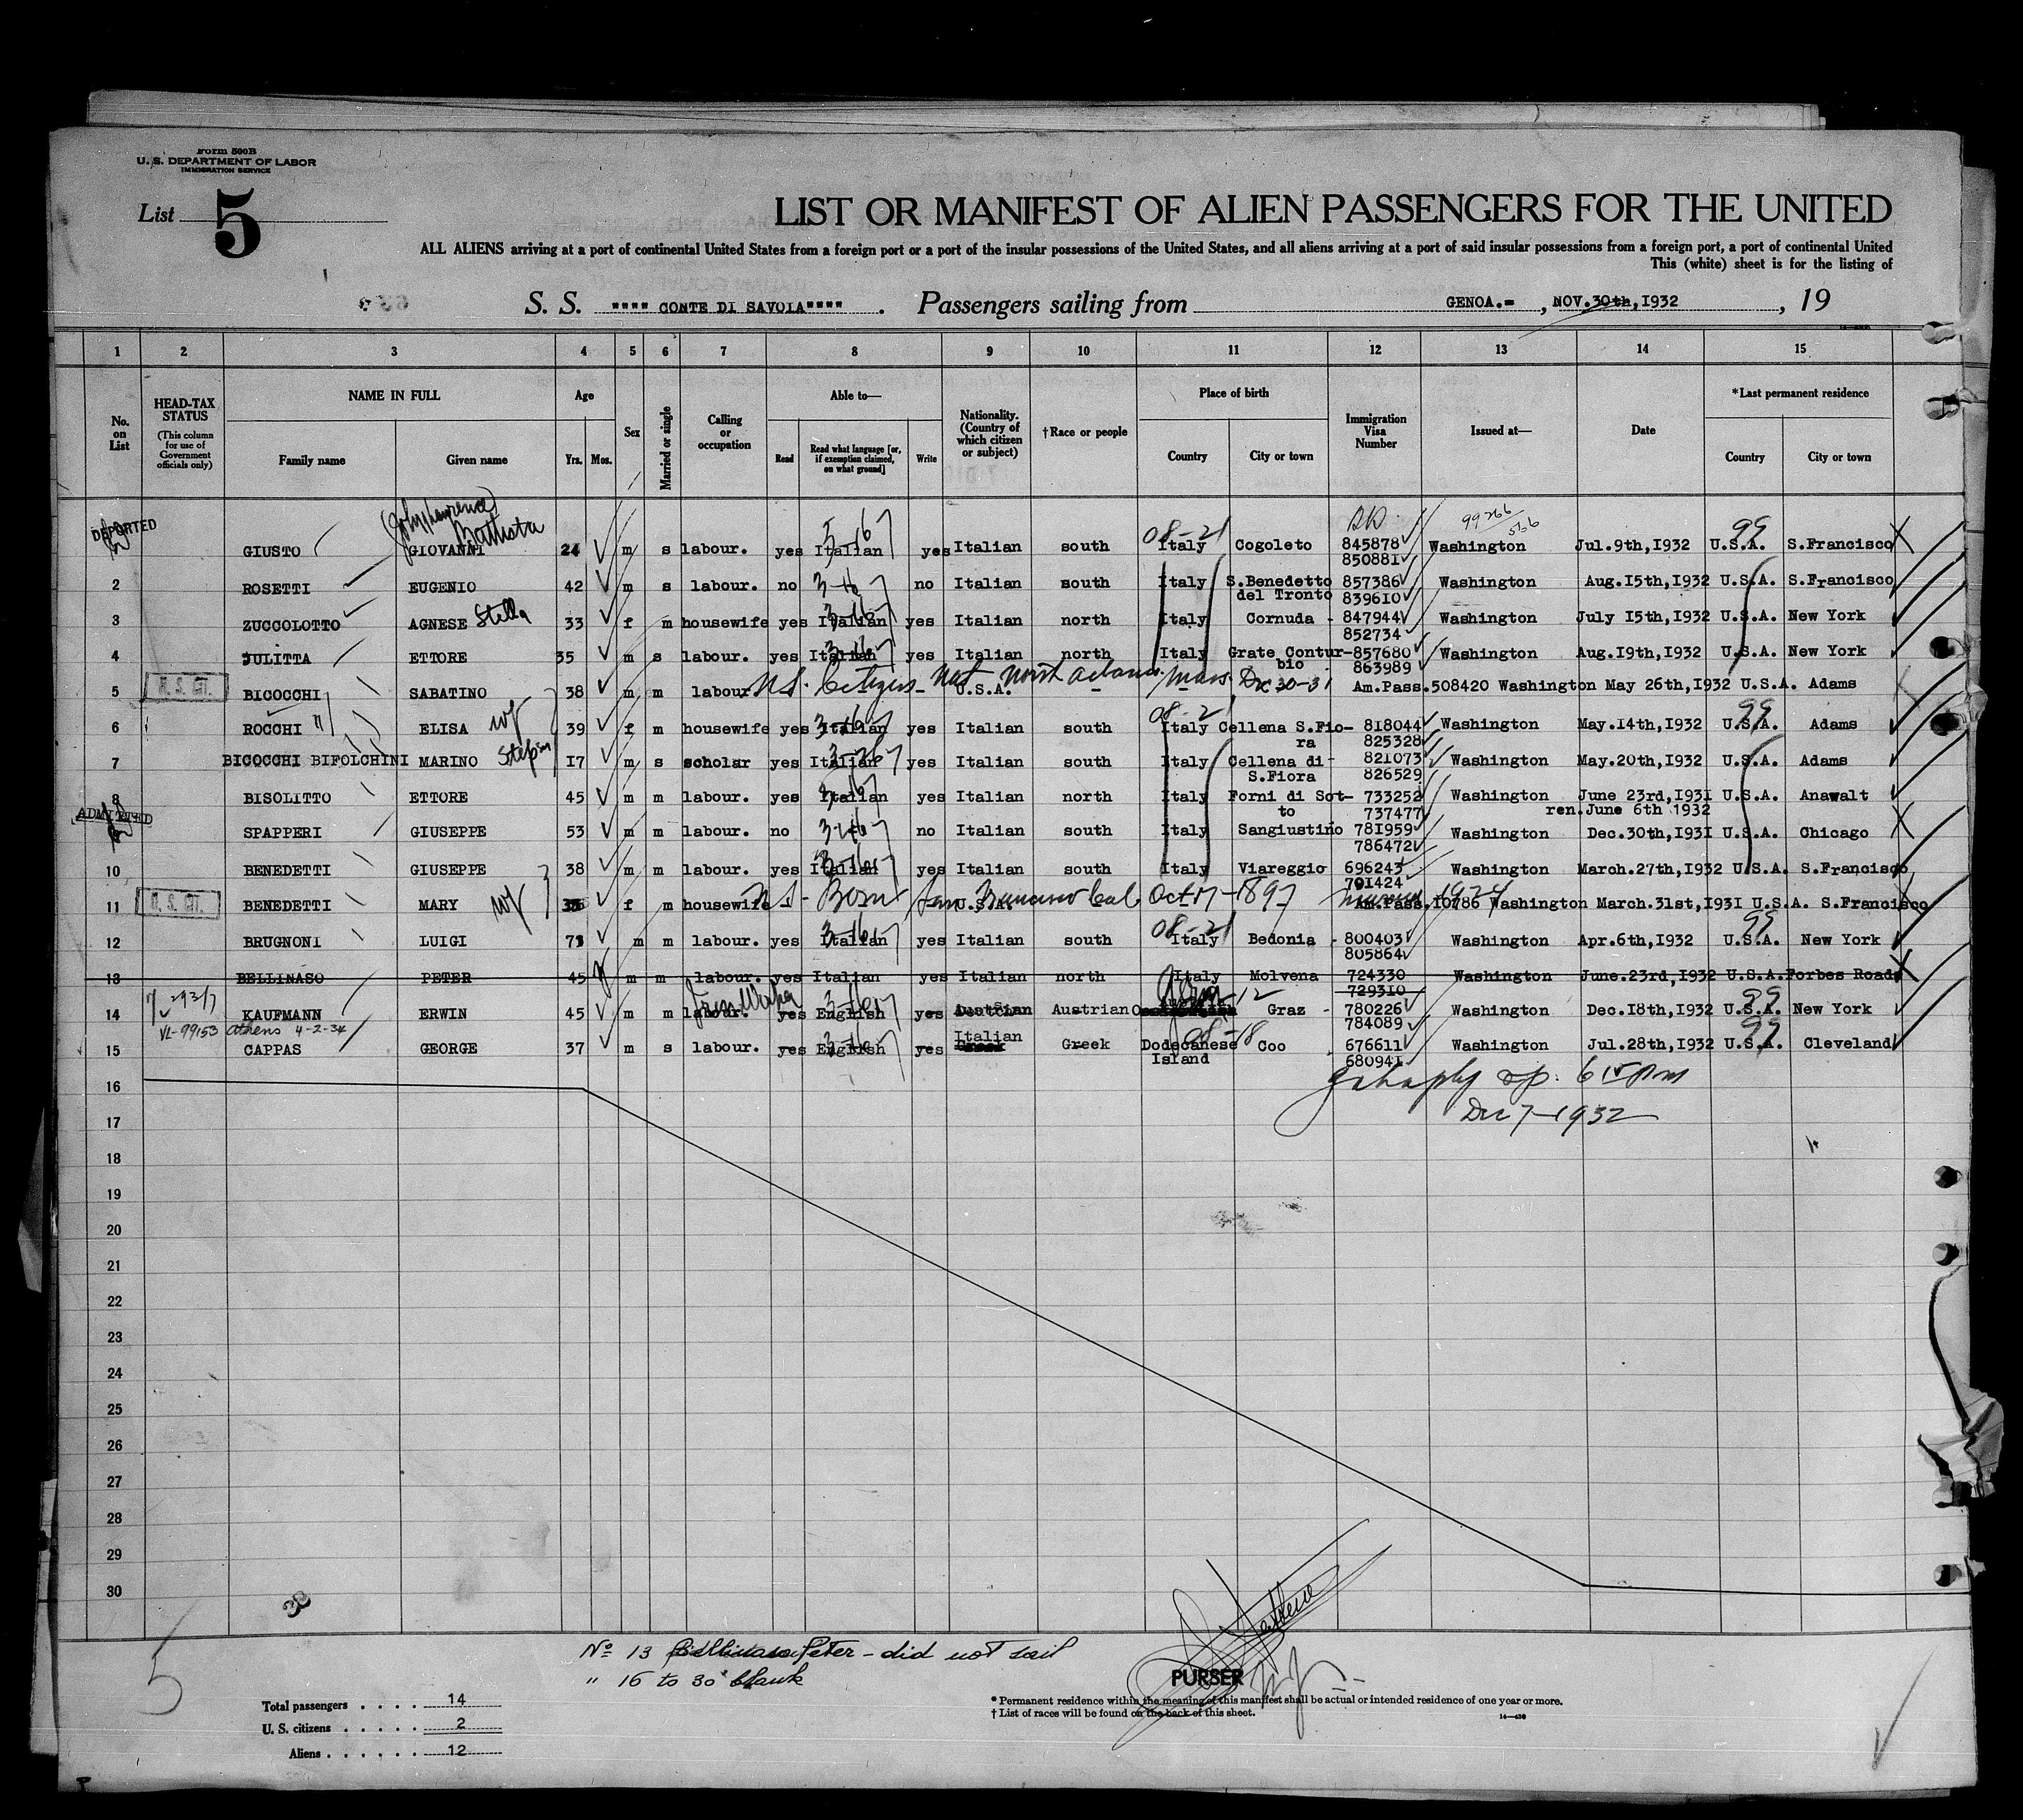 Form 500B
U. S. DEPARTMENT OF LABOR
IMMIGRATION SERVICE
List 5
LIST OR MANIFEST OF ALIEN PASSENGERS FOR THE UNITED
ALL ALIENS arriving at a port of continental United States from a foreign port or a port of the insular possessions of the United States, and all aliens arriving at a port of said insular possessions from a foreign port, a port of continental United
This (white) sheet is for the listing of
S. S. """" CONTE DI SAVOIA"""" . Passengers sailing from GENOA.= , NOV.30th,I932 , 19
1 2 3 4 5 6 7 8 9 10 11 12 13 14 15
No. on List
HEAD-TAX STATUS
(This column for use of Government officials only)
NAME IN FULL
Family name Given name
Age
Yrs. Mos.
Sex
Married or single
Calling or occupation
Able to—
Read Read what language [or, if exemption claimed, on what ground] Write
Nationality. (Country of which citizen or subject)
†Race or people
Place of birth
Country City or town
Immigration Visa Number
Issued at—
Date
*Last permanent residence
Country City or town
(John Lawrence) Battista
DEPORTED
GIUSTO GIOVANNI 24 m s labour. yes Italian yes Italian south Italy Cogoleto 845878 Washington Jul.9th,I932 U.S.A. S.Francisco
850881
2 ROSETTI EUGENIO 42 m s labour. no 3-16 no Italian south Italy S.Benedetto 857386 Washington Aug.I5th,I932 U.S.A. S.Francisco
del Tronto 839610
3 ZUCCOLOTTO AGNESE Stella 33 f m housewife yes Italian yes Italian north Italy Cornuda - 847944 Washington July I5th,I932 U.S.A. New York
852734
4 JULITTA ETTORE 35 m s labour. yes Italian yes Italian north Italy Grate Contur- 857680 Washington Aug.I9th,I932 U.S.A. New York
bio 863989
U.S. Citizen Nat North Adams Mass Dec 30-31
5 BICOCCHI SABATINO 38 m m labour. U.S.A. Am.Pass.508420 Washington May 26th,I932 U.S.A. Adams
6 ROCCHI ELISA wf 39 f m housewife yes Italian yes Italian south Italy Cellena S.Fio- 818044 Washington May.I4th,I932 U.S.A. Adams
ra 825328
7 BICOCCHI BIFOLCHINI MARINO Stepson I7 m s scholar yes Italian yes Italian south Italy Cellena di 821073 Washington May.20th,I932 U.S.A. Adams
S.Fiora 826529
8 BISOLITTO ETTORE 45 m m labour. yes Italian yes Italian north Italy Forni di Sot- 733252 Washington June 23rd,I93I U.S.A. Anawalt
to 737477 ren.June 6th 1932
ADMITTED
SPAPPERI GIUSEPPE 53 m m labour. no 3-16 no Italian south Italy Sangiustino 781959 Washington Dec.30th,I93I U.S.A. Chicago
786472
10 BENEDETTI GIUSEPPE 38 m m labour. yes Italian yes Italian south Italy Viareggio 696243 Washington March.27th,I932 U.S.A. S.Francisco
701424
US - Born San Francisco Cal Oct 17-1897 1924
11 BENEDETTI MARY wf f m housewife U.S.A. Am.Pass.10786 Washington March.31st,I93I U.S.A. S.Francisco
12 BRUGNONI LUIGI 73 m m labour. yes Italian yes Italian south Italy Bedonia - 800403 Washington Apr.6th,I932 U.S.A. New York
805864
13 BELLINASO PETER 45 m m labour. yes Italian yes Italian north Italy Molvena 724330 Washington June.23rd,I932 U.S.A. Forbes Roads
729310
14 KAUFMANN ERWIN 45 m m labour. yes English yes Austrian Austrian Graz - 780226 Washington Dec.I8th,I932 U.S.A. New York
784089
VL-99153 Athens 4-2-34
15 CAPPAS GEORGE 37 m s labour. yes English yes Italian Greek Dodecanese Coo 676611 Washington Jul.28th,I932 U.S.A. Cleveland
Island 680941
Dec 7-1932
16
17
18
19
20
21
22
23
24
25
26
27
28
29
30
No 13 Bellinaso Peter - did not sail
" 16 to 30 blank
PURSER
Total passengers . . . . . 14
U. S. citizens . . . . . 2
Aliens . . . . . . 12
* Permanent residence within the meaning of this manifest shall be actual or intended residence of one year or more.
† List of races will be found on the back of this sheet.
14—430